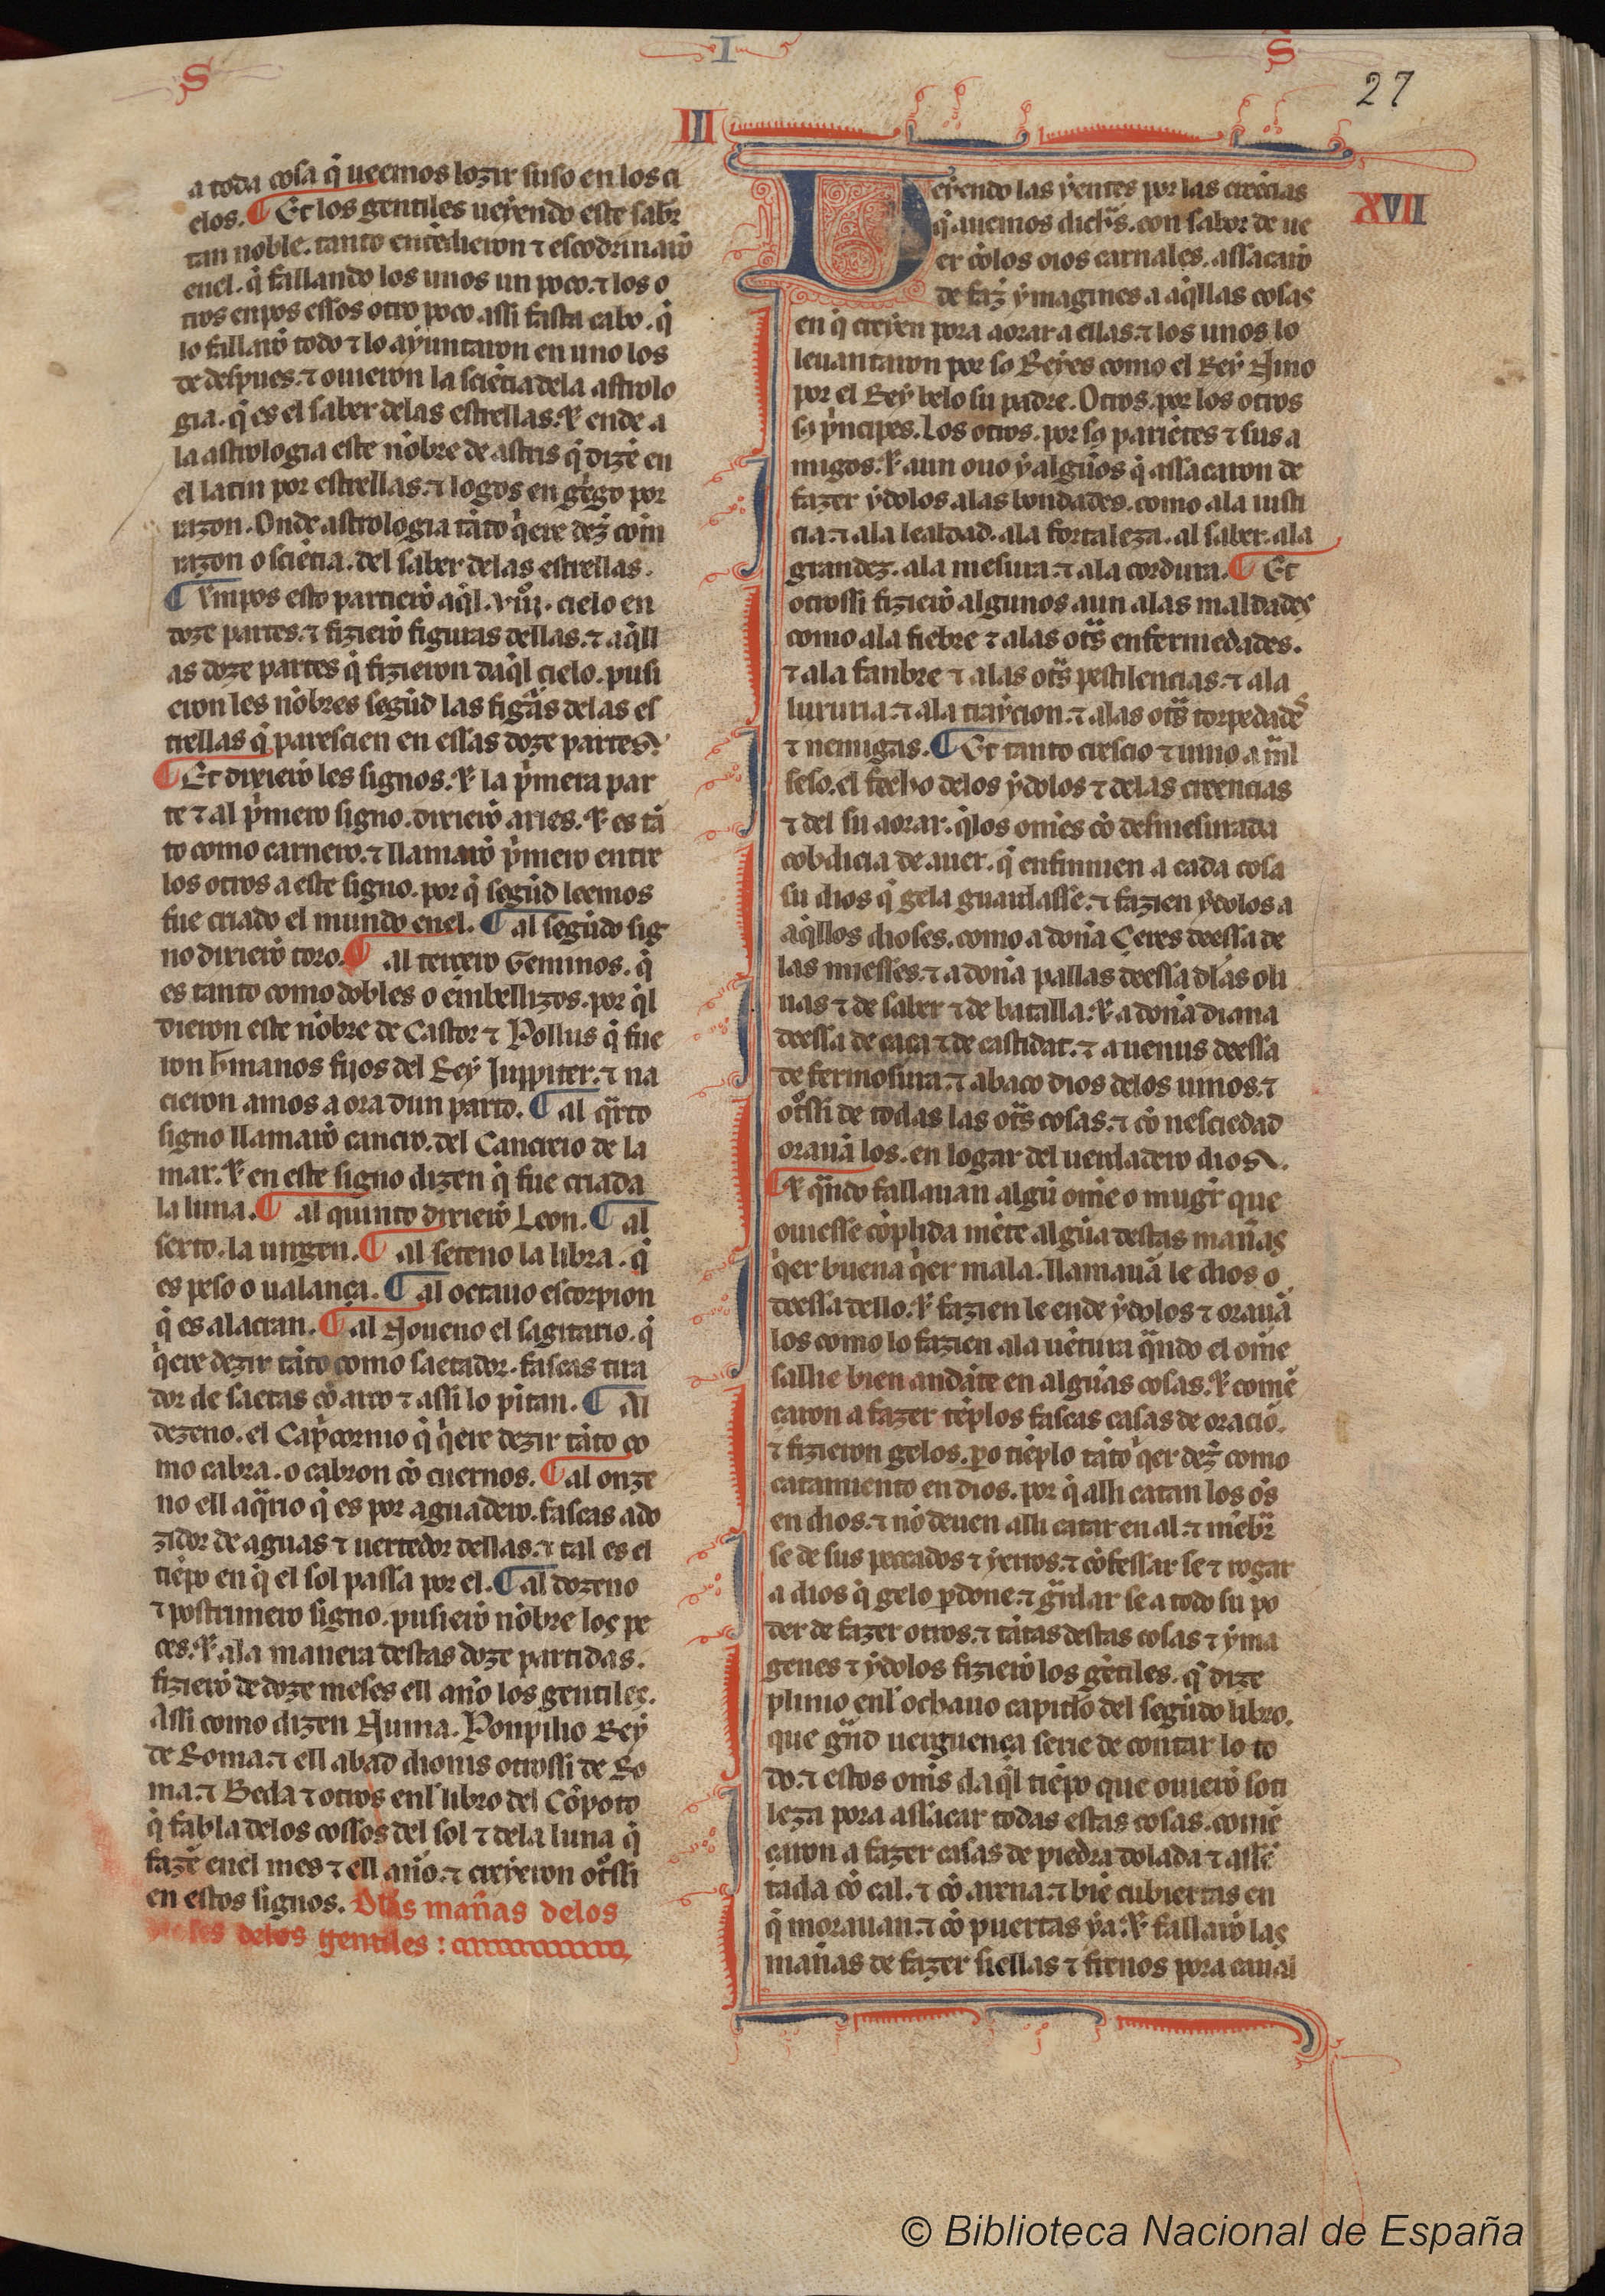 S
I
S
27
III
a toda cosa q̃ ueemos lozir suso en los ci
elos. ¶ Et los gentiles ueyendo este sab̃r
tan noble. tanto entẽdieron ⁊ escodrinarõ
enel. q̃ fallando los unos un poco. ⁊ los o
tros enpos essos otro poco assi fasta cabo. q̃
lo fallarõ todo ⁊ lo ayuntaron en uno los
de despues. ⁊ ouieron la sciẽcia dela astrolo
gia. q̃ es el saber delas estrellas. ⁊ ende a
la astrologia este nõbre de astris q̃ dizẽ en
el latin por estrellas. ⁊ logos en g̃ego por
razon. Onde astrologia tãto q̃ere dez̃ com
razon o sciẽcia. del saber delas estrellas.
¶ Empos esto partierõ aq̃l .viij. cielo en
doze partes. ⁊ fizierõ figuras dellas. ⁊ aq̃ll
as doze partes q̃ fizieron daq̃l cielo. pusi
eron les nõbres segũd las figãs delas es
trellas q̃ parescien en essas doze partes.
¶ Et dixierõ les signos. ⁊ la p̃mera par
te ⁊ al p̃mero signo. dixierõ aries. ⁊ es tã
to como carnero. ⁊ llamarõ p̃mero entre
los otros a este signo. por q̃ segũd leemos
fue criado el mundo enel. ¶ al segũdo sig
no dixierõ toro. ¶ al tercero Geminos. q̃
es tanto como dobles o embellizos. por q̃l
dieron este nõbre de Castor ⁊ Pollus q̃ fue
ron h̃manos fijos del Rey Juppiter. ⁊ na
cieron amos a ora dun parto. ¶ al q̃rto
signo llamarõ cancro. del Cancreio de la
mar. ⁊ en este signo dizen q̃ fue criada
la luna. ¶ al quinto dixierõ Leon. ¶ al
sexto. la uirgen. ¶ al seteno la libra. q̃
es peso o ualança. ¶ al octauo escorpion
q̃ es alacran. ¶ al Noueno el sagitario. q̃
q̃ere dezir tãto como saetador. fascas tira
dor de saetas cõ arco ⁊ assi lo pitan. ¶ Al
dezeno. el Cap̃cornio q̃ q̃ere dezir tãto co
mo cabra. o cabron cõ cuernos. ¶ al onze
no ell aq̃rio q̃ es por aguadero. fascas ado
zidor de aguas ⁊ uertedor dellas. ⁊ tal es el
tiẽpo en q̃ el sol passa por el. ¶ al dozeno
⁊ postrimero signo. pusierõ nõbre los pe
ces. ⁊ ala manera destas doze partidas.
fizierõ de doze meses ell año los gentiles.
Assi como dizen Numa. Ponpilio Rey
de Roma. ⁊ ell abad dionis otrossi de Ro
ma. ⁊ Beda ⁊ otros enl libro del Cõpoto
q̃ fabla delos cossos del sol ⁊ dela luna q̃
fazẽ enel mes ⁊ ell año. ⁊ creyeron ot̃ssi
en estos signos. Ot̃s mañas delos
delos gentiles :
XVII
Ueyendo las yentes por las creẽcias
q̃ auemos dichas. con sabor de ue
er cõlos oios carnales. assacarõ
de faz̃ ymagines a aq̃llas cosas
en q̃ creyen pora aorar a ellas. ⁊ los unos lo
leuantaron por so Reyes como el Rey Nino
por el Rey belo su padre. Otros. por los otros
sos p̃ncipes. Los otros. por sos pariẽtes ⁊ sus a
migos. ⁊ aun ouo y algũos q̃ assacaron de
fazer ydolos alas bondades. como ala iusti
cia. ⁊ ala lealdad. ala fortaleza. al saber. ala
grandez. ala mesura. ⁊ ala cordura. ¶ Et
otrossi fizierõ algunos aun alas maldades
como ala fiebre ⁊ alas ot̃s enfermedades.
⁊ ala fanbre ⁊ alas ot̃s pestilencias. ⁊ ala
luxuria. ⁊ ala trayçion. ⁊ alas ot̃s torpedades
⁊ nemigas. ¶ Et tanto crescio ⁊ uino a mal
seso. el fecho delos ydolos ⁊ delas creencias
⁊ del su aorar. q̃los omẽs cõ desmesurada
cobdicia de auer. q̃ enfinnien a cada cosa
su dios q̃ gela guardasse. ⁊ fazien ydolos a
aq̃llos dioses. como a doña Ceres deessa de
las miesses. ⁊ a doña pallas deessa dlas oli
uas ⁊ de saber ⁊ de batalla. ⁊ a doña diana
deessa de caça ⁊ de castidat. ⁊ a uenus deessa
de fermosura. ⁊ abaco dios delos uinos. ⁊
ot̃ssi de todas las ot̃s cosas. ⁊ cõ nesciedad
orauã los. en logar del uerdadero dios.
¶ ⁊ q̃ndo fallauan algũ omẽ o mugr̃ que
ouiesse cõplida mẽte algũa destas mañas
q̃er buena q̃er mala. llamauã le dios o
deessa dello. ⁊ fazien le ende ydolos ⁊ orauã
los como lo fazien ala uẽtura q̃ndo el omẽ
sallie bien andãte en algũas cosas. ⁊ comẽ
çaron a fazer tẽplos fascas casas de oraciõ.
⁊ fizieron gelos. p̃o tiẽplo tãto q̃er dez̃ como
catamiento en dios. por q̃ alli catan los oñs
en dios. ⁊ nõ deuen alli catar en al. ⁊ mẽbr̃
se de sus peccados ⁊ yerros. ⁊ cõfessar se ⁊ rogar
a dios q̃ gelo p̃done. ⁊ g̃rdar se a todo su po
der de fazer otros. ⁊ tãtas destas cosas ⁊ yma
genes ⁊ ydolos fizierõ los gẽtiles. q̃ dize
plinio enl ochauo capitl̃o del segũdo libro.
que g̃nd uerguença serie de contar lo to
do. ⁊ estos oms̃ daq̃l tiẽpo que ouierõ soti
leza pora assacar todas estas cosas. comẽ
çaron a fazer casas de piedra dolada ⁊ assẽ
tada cõ cal. ⁊ cõ arena. ⁊ biẽ cubiertas en
q̃ morauan. ⁊ cõ puertas ya. ⁊ fallarõ las
mañas de fazer siellas ⁊ frenos pora caual
© Biblioteca Nacional de España